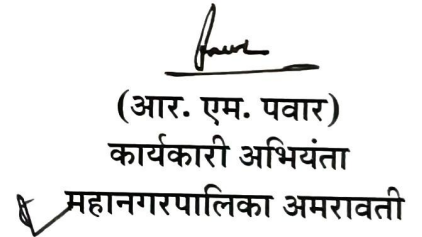 (आर. एम. पवार)
कार्यकारी अभियंता
महानगरपालिका अमरावती